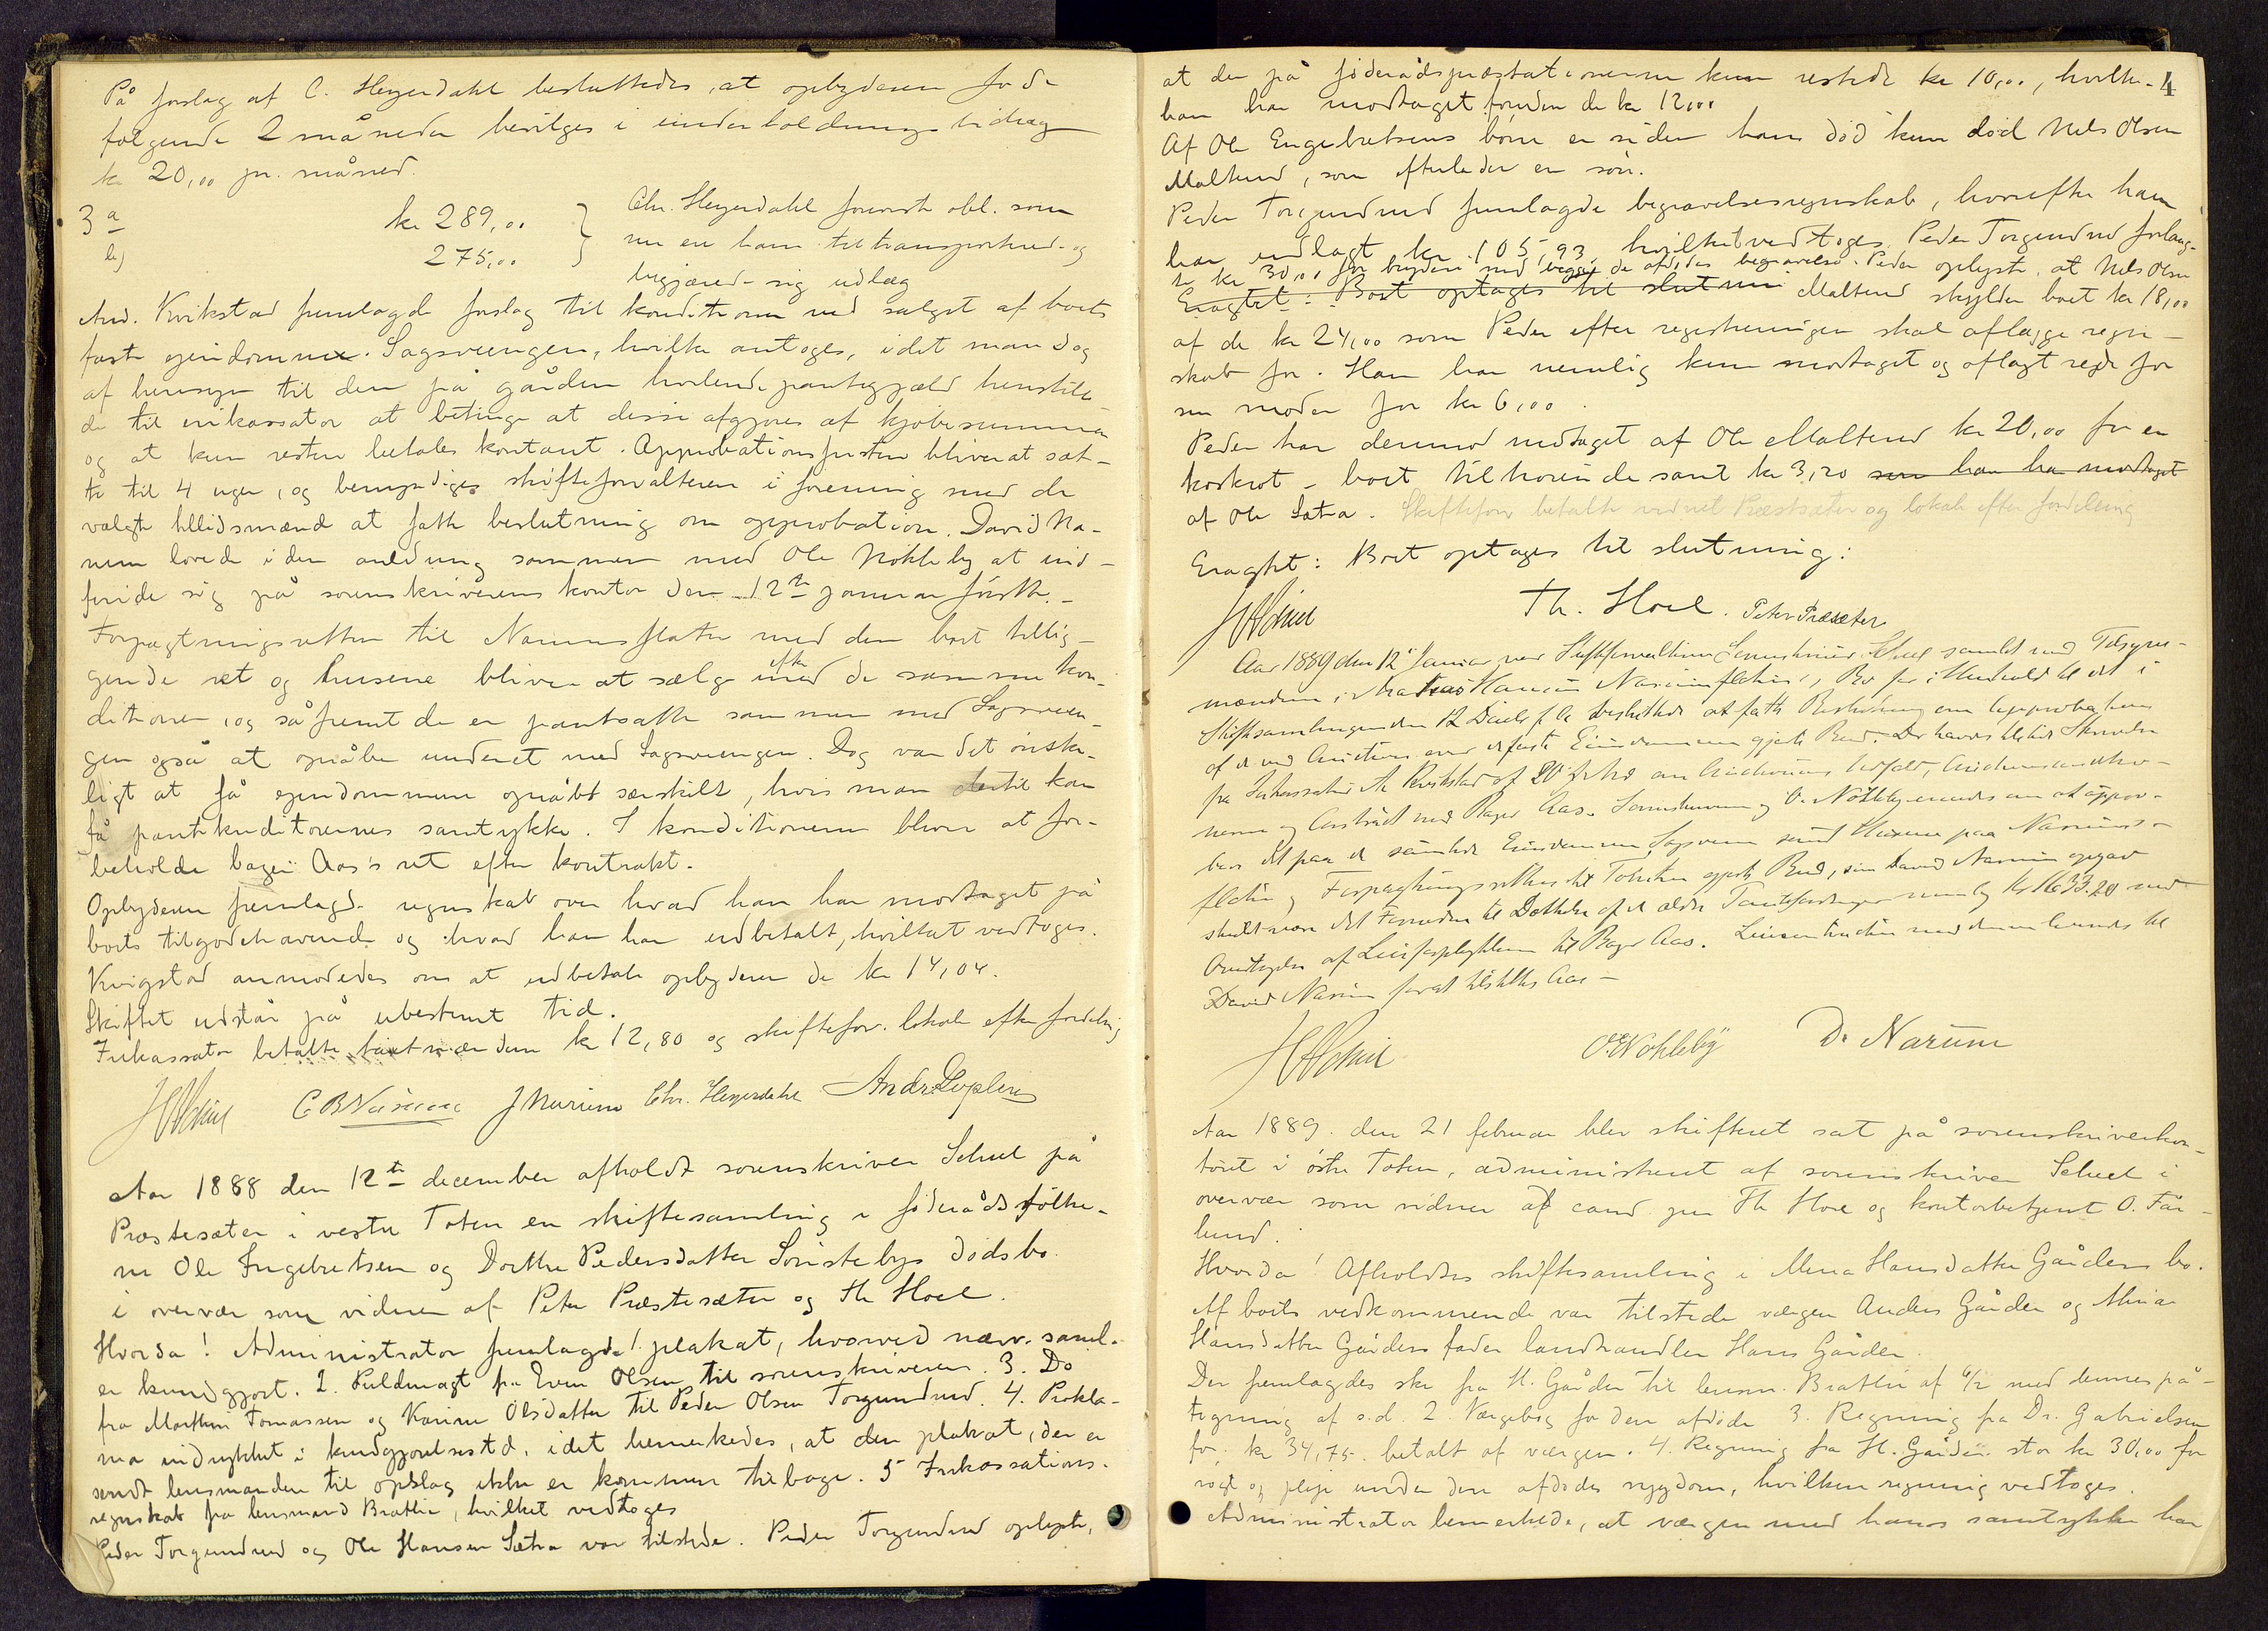 På forslag af C. Heyerdahl besluttedes, at opbyderen for de
følgende 2 måneder bevilges i underholdningsbidrag
kr 20,00 pr. måned.
3 a kr 289,00 } Chr. Heyerdahl foreviste obl. som
b) 275,00 nu er ham tiltransporteret og
begjærede sig udlæg
And. Kvikstad fremlagde forslag til konditioner ved salget af boets
faste ejendomme Sagsveengen, hvilke antoges, idet man dog
af hensyn til den på gården hvilende pantegjæld henstill-
de til inkassator at betinge at disse afgjøres af kjøbesummen
og at kun resten betales kontant. Approbationsfristen bliver at sæt-
te til 4 uger, og bemyndiges skifteforvalteren i forening med de
valgte tillidsmænd at fatte beslutning om approbation. David Na-
rum lovede i den anledning sammen med Ole Nøkleby at ind-
finde sig på sorenskriverens kontor den 12te januar førstk.
Forpagtningsretten til Narumsflaten med den boet tillig-
gende ret og husene bliver at sælge efter de samme kon-
ditioner, og såfremt de er pantsatte sammen med Sagsveen-
gen også at opråbe under et med Sagsveengen. Dog var det ønske-
ligt at få ejendommene opråbt særskilt, hvis man dertil kan
få pantekreditorernes samtykke. I konditionerne bliver at for-
beholde bager Aas's ret efter kontrakt.
Opbyderen fremlagde regnskab over hvad han har modtaget på
boets tilgodehavende og hvad han har udbetalt, hvilket vedtoges.
Kvigstad anmodedes om at udbetale opbyderen de kr 14,04.
Skiftet udstår på ubestemt tid.
Inkassator betalte kr 12,80 og skifteforv. lokale efter fordeling
HScheel C B Narum J Narum Chr. Heyerdahl
Aar 1888 den 12te december afholdt sorenskriver Scheel på
Præstesæter i vestre Toten en skiftesamling i føderådsfolke-
ne Ole Ingebretsen og Dorthe Pedersdatter Sønstebys dødsbo
i overvær som vidner af Peter Præstesæter og Th Hoel.
Hvorda! Administrator fremlagde 1. plakat, hvorved nærv. saml.
er kundgjort. 2. Fuldmagt fra Even Olsen til sorenskriveren. 3. Do
fra Marthin Tomassen og Karine Olsdatter til Peder Olsen Torgundrud. 4. Prokla-
ma indrykket i kundgjørelsestd. idet bemerkedes, at den plakat, der er
sendt lensmanden til opslag ikke er kommen tilbage. 5 Inkassations-
regnskab fra lensmand Brattlie, hvilket vedtoges
Peder Torgundrud og Ole Hansen Sætra var tilstede. Peder Torgundrud oplyste,
4
at der på føderådspræstationerne kun restede kr 10,00, hvilke
han har modtaget foruden de kr 12,00
Af Ole Engebretsens børn er siden hans død kun død Nels Olsen
Malterud, som efterlader en søn.
Peder Torgundrud fremlagde begravelsesregnskab, hvorefter han
har udlagt kr 105,93, hvilket vedtoges. Peder Torgundrud forlang-
te kr 30,00 for bryderi med begge de afdødes begravelse. Peder oplyste, at Nels Olsen
Eragtet: Boet optages til slutnin Malterud skylder boet kr 18,00
af de kr 24,00 som Peder efter registreringen skal aflægge regn-
skab for. Han har nemlig kun modtaget og aflagt rede for
sin moder for kr 6,00.
Peder har derimod modtaget af Ole Malterud kr 20,00 for en
boet tilhørende samt kr 3,20 som han har modtaget
af Ole Sætra. Skifteforv betalte vidnet Præstsæter og lokale efter fordeling
Eragtet: Boet optages til slutning:
HScheel Th. Hoel. Peter Præsæter
Aar 1889 den 12te Januar var Skifteforvalteren Sorenskriver Scheel samlet med Tilsyns-
mændene i Narumsflaten's Bo for i Henhold til det i
Skiftesamlingen den 12 Decbr f. A. besluttede at fatte Beslutning om Approbation
af det ved Auktion over de faste Eiendomme gjorte Bud. Der havdes tilstede Skrivelse
fra Inkassator A Kvikstad af 20 om Auktionens Udfald,
og Contract med Bager Aas. Sorenskriveren og O. Nøkleby enedes om at appro-
bere det paa de samlede Eiendomme, Sagsveen samt Husene paa Narums-
flaten og Forpagtningsretten til Tomten gjorte Bud, som David Narum opgav
skulde være det fornødne til Dækkelse af de ældre Pantefordringer nemlig kr 1633.20 med
Overtagelse af Leieforpligtelsen til Bager Aas.
David Narum for at tilstilles Aas -
HScheel O. Nøkleby D. Narum
Aar 1889 den 21 februar blev skifteret sat på sorenskriverkon-
toret i østre Toten, administreret af sorenskriver Scheel i
overvær som vidner af cand. jur Th Hoel og kontorbetjent O. Får-
lund.
Hvorda! Afholdtes skiftesamling i Mina Hansdatter Gårders bo.
Af boets vedkommende var tilstede værgen Anders Gårder og Mina
Hansdatter Gårders fader landhandler Hans Gårder.
Der fremlagdes skr fra H. Gårder til lensm. Brattlie af 6/2 med dennes på-
tegning af s.d. 2 Værgebog for den afdøde 3. Regning fra Dr. Gabrielsen
for kr 34,75 betalt af værgen. 4. Regning fra H. Gårder stor kr 30,00 for
røgt og pleje under den afdødes sygdom, hvilken regning vedtoges.
Administrator bemerkede, at værgen med hans samtykke har